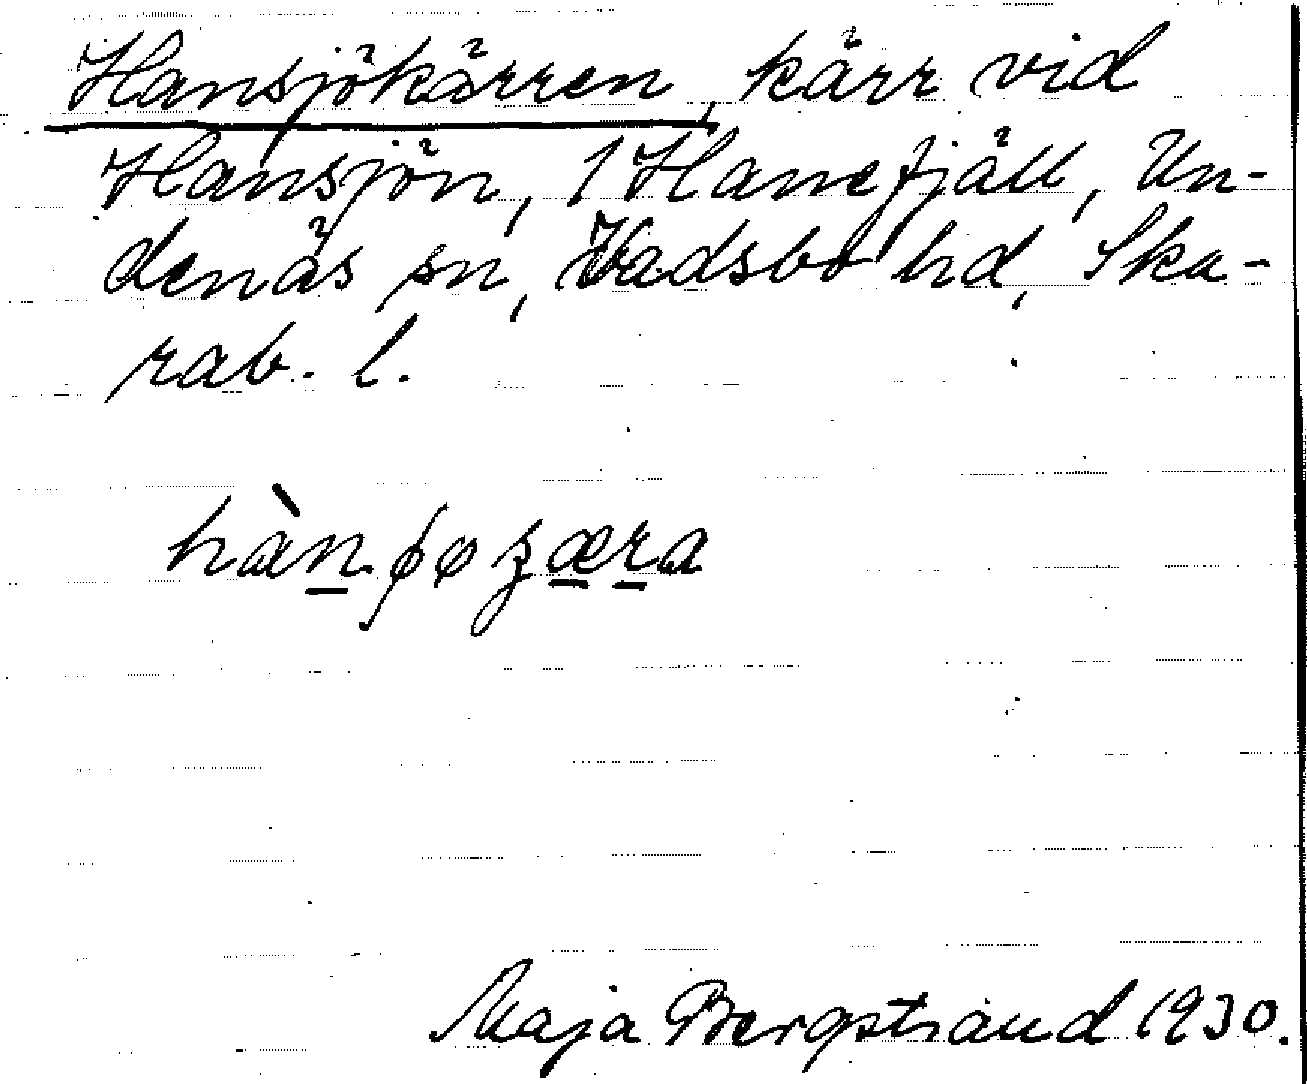 Hansjökärren, kärr vid
Hansjön, 1 Hanefjäll, Un-
denäs sn, Vadsbo hd, Ska-
rab. l.
Maja Bergstrand 1930.